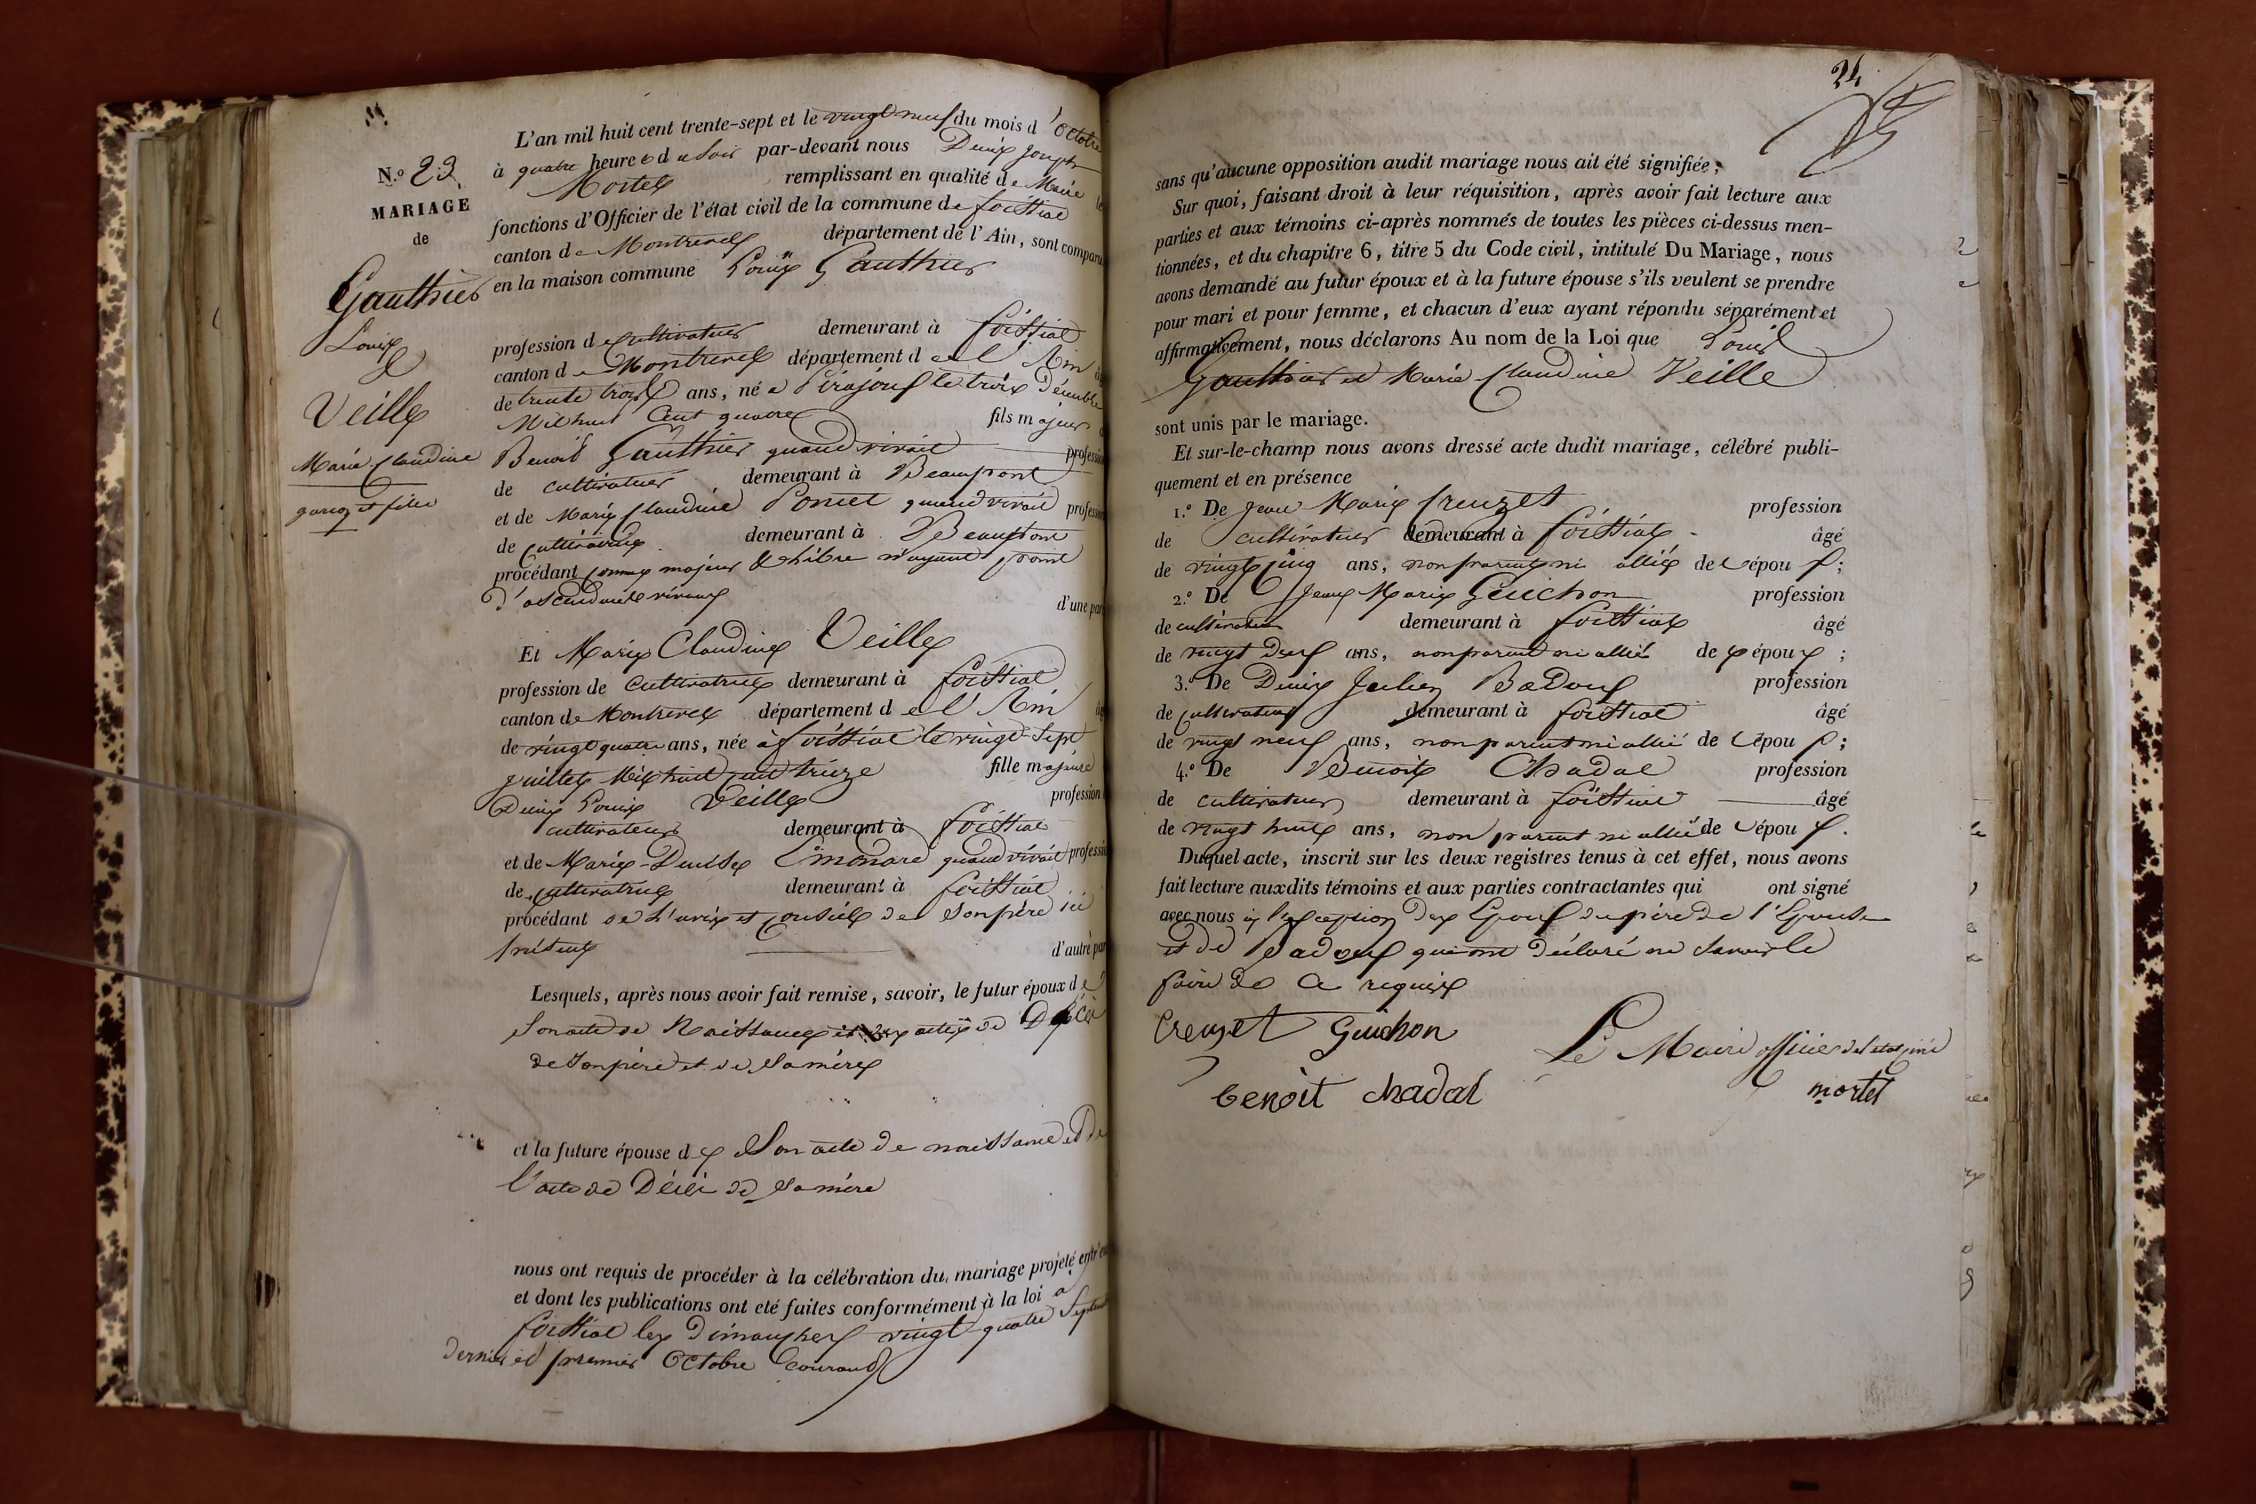 N.º 23
MARIAGE
de
Gauthier
Louis
&
Veille
Marie Claudine
garçon et fille
L'an mil huit cent trente-sept et le vingt neuf du mois d'Octobre
à quatre heures du soir par-devant nous Denis Joseph
Mortel remplissant en qualité de Maire les
fonctions d'Officier de l'état civil de la commune de foissiat
canton de Montrevel département de l'Ain, sont comparus
en la maison commune Louis Gauthier
profession de cultivateur demeurant à foissiat
canton de Montrevel département de l'Ain
de trente trois ans, né a Pirajoux le trois Décembre
Mil huit Cent quatre fils majeur
Benoit Gauthier quand vivait profession
de cultivateur demeurant à Beaupont
et de Marie Claudine Poncet quand vivait profession
de cultivatrice demeurant à Beaupont
procédant comme majeur & libre n'ayant point
d'ascendants vivans d'une part
Et Marie Claudine Veille
profession de cultivatrice demeurant à foissiat
canton de Montrevel département de l'Ain
de vingt quatre ans, née à foissiat le vingt sept
juillet Mil huit cent treize fille majeure
Denis Louis Veille profession
cultivateur demeurant à foissiat
et de Marie-Denise Limonard quand vivait profession
de cultivatrice demeurant à foissiat
procédant de l'avis et conseil de son père ici
présent d'autre part
Lesquels, après nous avoir fait remise, savoir, le futur époux de
son acte de Naissance et des actes de Décès
de son père et de sa mère
et la future épouse de son acte de naissance et de
l'acte de Décès de sa mère
nous ont requis de procéder à la célébration du mariage projeté entr'eux
et dont les publications ont été faites conformément à la loi a
foissiat les dimanches vingt quatre Septembre
dernier et premier Octobre courant
24
sans qu'aucune opposition audit mariage nous ait été signifiée;
Sur quoi, faisant droit à leur réquisition, après avoir fait lecture aux
parties et aux témoins ci-après nommés de toutes les pièces ci-dessus men-
tionnées, et du chapitre 6, titre 5 du Code civil, intitulé Du Mariage, nous
avons demandé au futur époux et à la future épouse s'ils veulent se prendre
pour mari et pour femme, et chacun d'eux ayant répondu séparément et
affirmativement, nous déclarons Au nom de la Loi que Louis
Gauthier et Marie Claudine Veille
sont unis par le mariage.
Et sur-le-champ nous avons dressé acte dudit mariage, célébré publi-
quement et en présence
1.º De Jean Marie Creuzet profession
de cultivateur demeurant à foissiat âgé
de vingt cinq ans, non parent ni allié des époux;
2.º De Jean Marie Guichon profession
de cultivateur demeurant à foissiat âgé
de vingt deux ans, non parent ni allié des époux;
3.º De Denis Julien Badoux profession
de cultivateur demeurant à foissiat âgé
de vingt neuf ans, non parent ni allié des époux;
4.º De Benoit Chadal profession
de cultivateur demeurant à foissiat âgé
de vingt huit ans, non parent ni allié des époux.
Duquel acte, inscrit sur les deux registres tenus à cet effet, nous avons
fait lecture auxdits témoins et aux parties contractantes qui ont signé
avec nous à l'exception des Epoux du père de l'Epouse
et de Badoux qui ont déclaré ne savoir le
faire de ce requis
Creuzet Guichon
Le Maire officier de l'état civil
benoit chadal
mortel